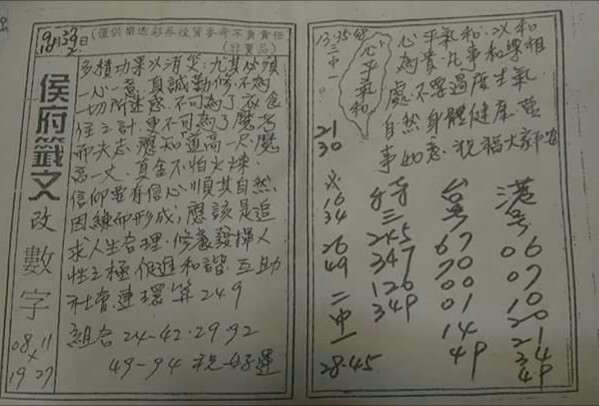 (僅供樂透彩券投資參考不負責任
(非賣品)
侯府籤文
改數字
08.11
×
19 27
多積功果以消災:尤其必須
一心一意.真誠勤修.不為
一切所迷惑.不可為了衣食
住之計.更不可為了魔考
而失志.應知道高一尺.魔
高一丈.真金不怕火煉.
信仰要有信心.順其自然.
因練而形成:應該是追
求人生合理.修養發揮人
性之極促進和諧.互助
社會.連環算249
組合24-42.29.92
49-94 祝好運
13.45
三中一
心平氣和
心平氣和:以和
為貴.凡事和學相
處.不要過度生氣
自然身體健康.萬
事如意.祝福大家平安
21
30
×
16
34
26
49
二中一
28.45
三
245
347
126
349
台号
67
70
00
01
14
49
港号
06
07
10
20
21
34
49